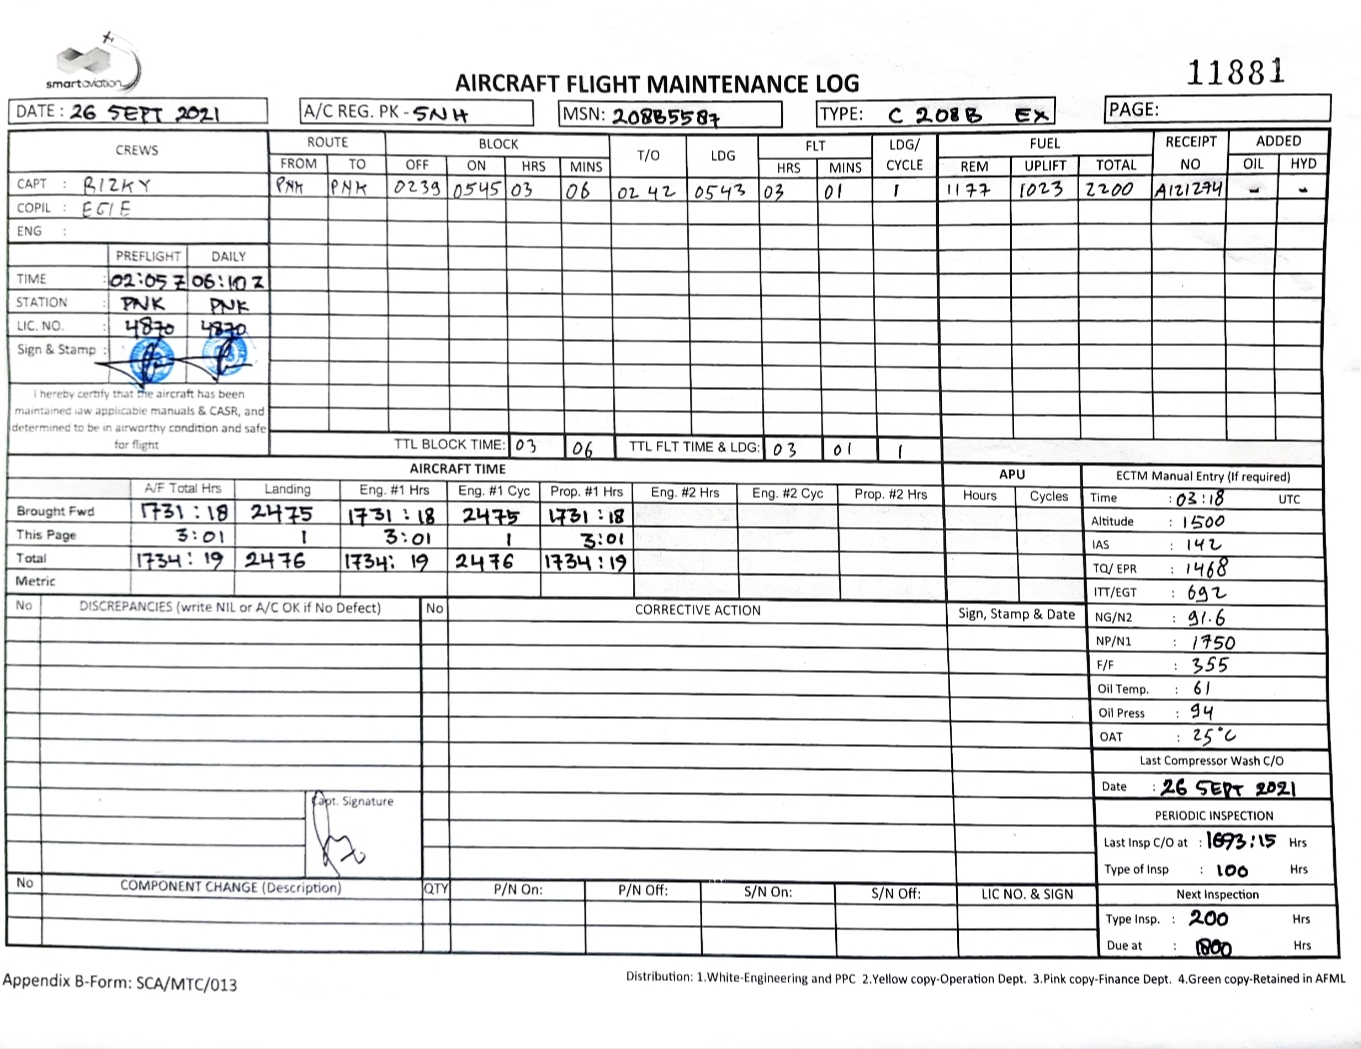 smartaviation
11881
AIRCRAFT FLIGHT MAINTENANCE LOG
DATE : 26 SEPT 2021 A/C REG. PK - SNH MSN: 208B5587 TYPE: C 208B EX PAGE:
CREWS ROUTE BLOCK T/O LDG FLT LDG/ CYCLE FUEL RECEIPT NO ADDED
FROM TO OFF ON HRS MINS HRS MINS REM UPLIFT TOTAL OIL HYD
CAPT : RIZKY PNK PNK 0239 0545 03 06 02 42 0543 03 01 1 1177 1023 2200 A121274 - -
COPIL : EGIE
ENG :
PREFLIGHT DAILY
TIME : 02:05 Z 06:10 Z
STATION : PNK PNK
LIC. NO. : 4870 4870
Sign & Stamp :
I hereby certify that the aircraft has been
maintained iaw applicable manuals & CASR, and
determined to be in airworthy condition and safe
for flight
TTL BLOCK TIME: 03 06 TTL FLT TIME & LDG: 03 01 1
AIRCRAFT TIME APU ECTM Manual Entry (If required)
A/F Total Hrs Landing Eng. #1 Hrs Eng. #1 Cyc Prop. #1 Hrs Eng. #2 Hrs Eng. #2 Cyc Prop. #2 Hrs Hours Cycles Time : 03:18 UTC
Brought Fwd 1731:18 2475 1731:18 2475 1731:18 Altitude : 1500
This Page 3:01 1 3:01 1 3:01 IAS : 142
Total 1734:19 2476 1734:19 2476 1734:19 TQ/ EPR : 1468
Metric ITT/EGT : 692
No DISCREPANCIES (write NIL or A/C OK if No Defect) No CORRECTIVE ACTION Sign, Stamp & Date NG/N2 : 91.6
NP/N1 : 1750
F/F : 355
Oil Temp. : 61
Oil Press : 94
OAT : 25°C
Last Compressor Wash C/O
Date : 26 SEPT 2021
Capt. Signature
PERIODIC INSPECTION
Last Insp C/O at : 1693:15 Hrs
Type of Insp : 100 Hrs
No COMPONENT CHANGE (Description) QTY P/N On: P/N Off: S/N On: S/N Off: LIC NO. & SIGN Next Inspection
Type Insp. : 200 Hrs
Due at : 1800 Hrs
Appendix B-Form: SCA/MTC/013 Distribution: 1.White-Engineering and PPC 2.Yellow copy-Operation Dept. 3.Pink copy-Finance Dept. 4.Green copy-Retained in AFML